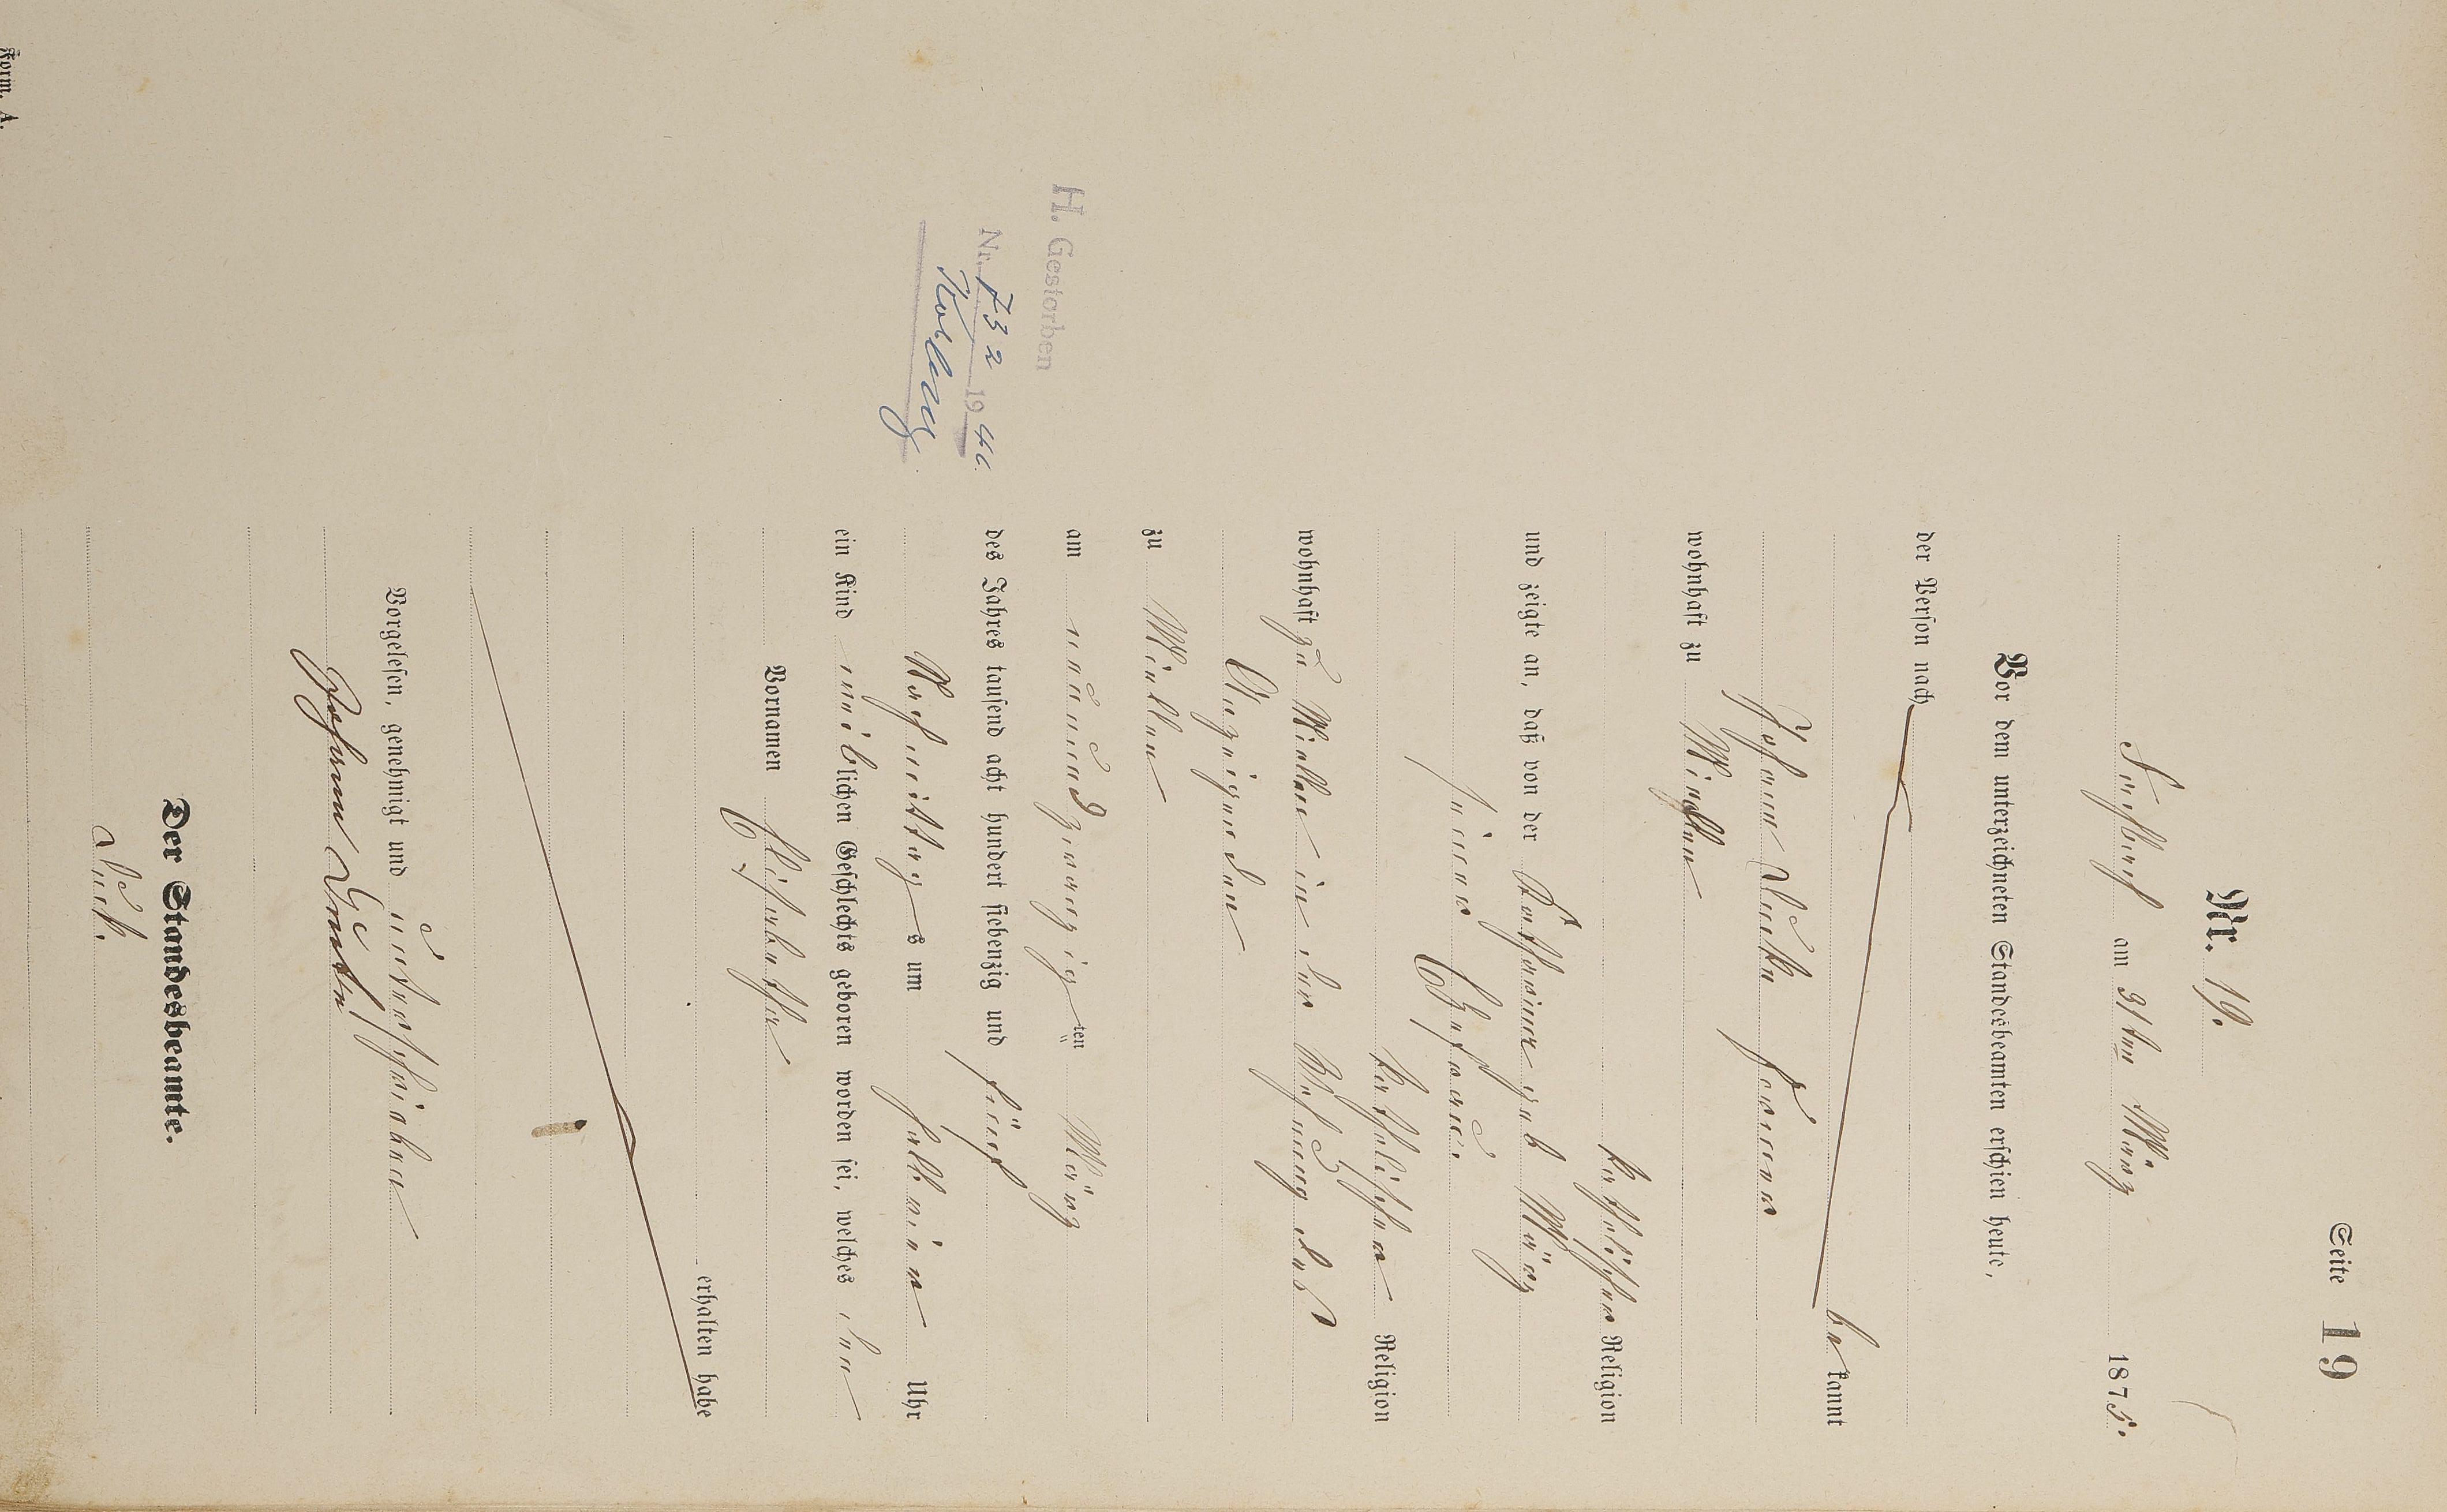 Seite 19
Nr. 19.
Fachbach am 31ten März 1875.
Vor dem unterzeichneten Standesbeamten erschien heute,
der Person nach
bekannt
Johann
wohnhaft zu Miellen
katholischer Religion
und zeigte an, daß von der Katharina geb. März
seiner Ehefrau
katholischer Religion
wohnhaft zu Miellen in der Wohnung des
Anzeigenden
zu Miellen
am neunundzwanzigten März
des Jahres tausend acht hundert siebenzig und fünf
Nachmittags um halb ein Uhr
ein Kind weiblichen Geschlechts geboren worden sei, welches den
Vornamen Elisabetha
erhalten habe
Vorgelesen, genehmigt und unterschrieben
Johann
Der Standesbeamte.
H. Gestorben
Nr. 732 1946
Koblenz
Form. A.